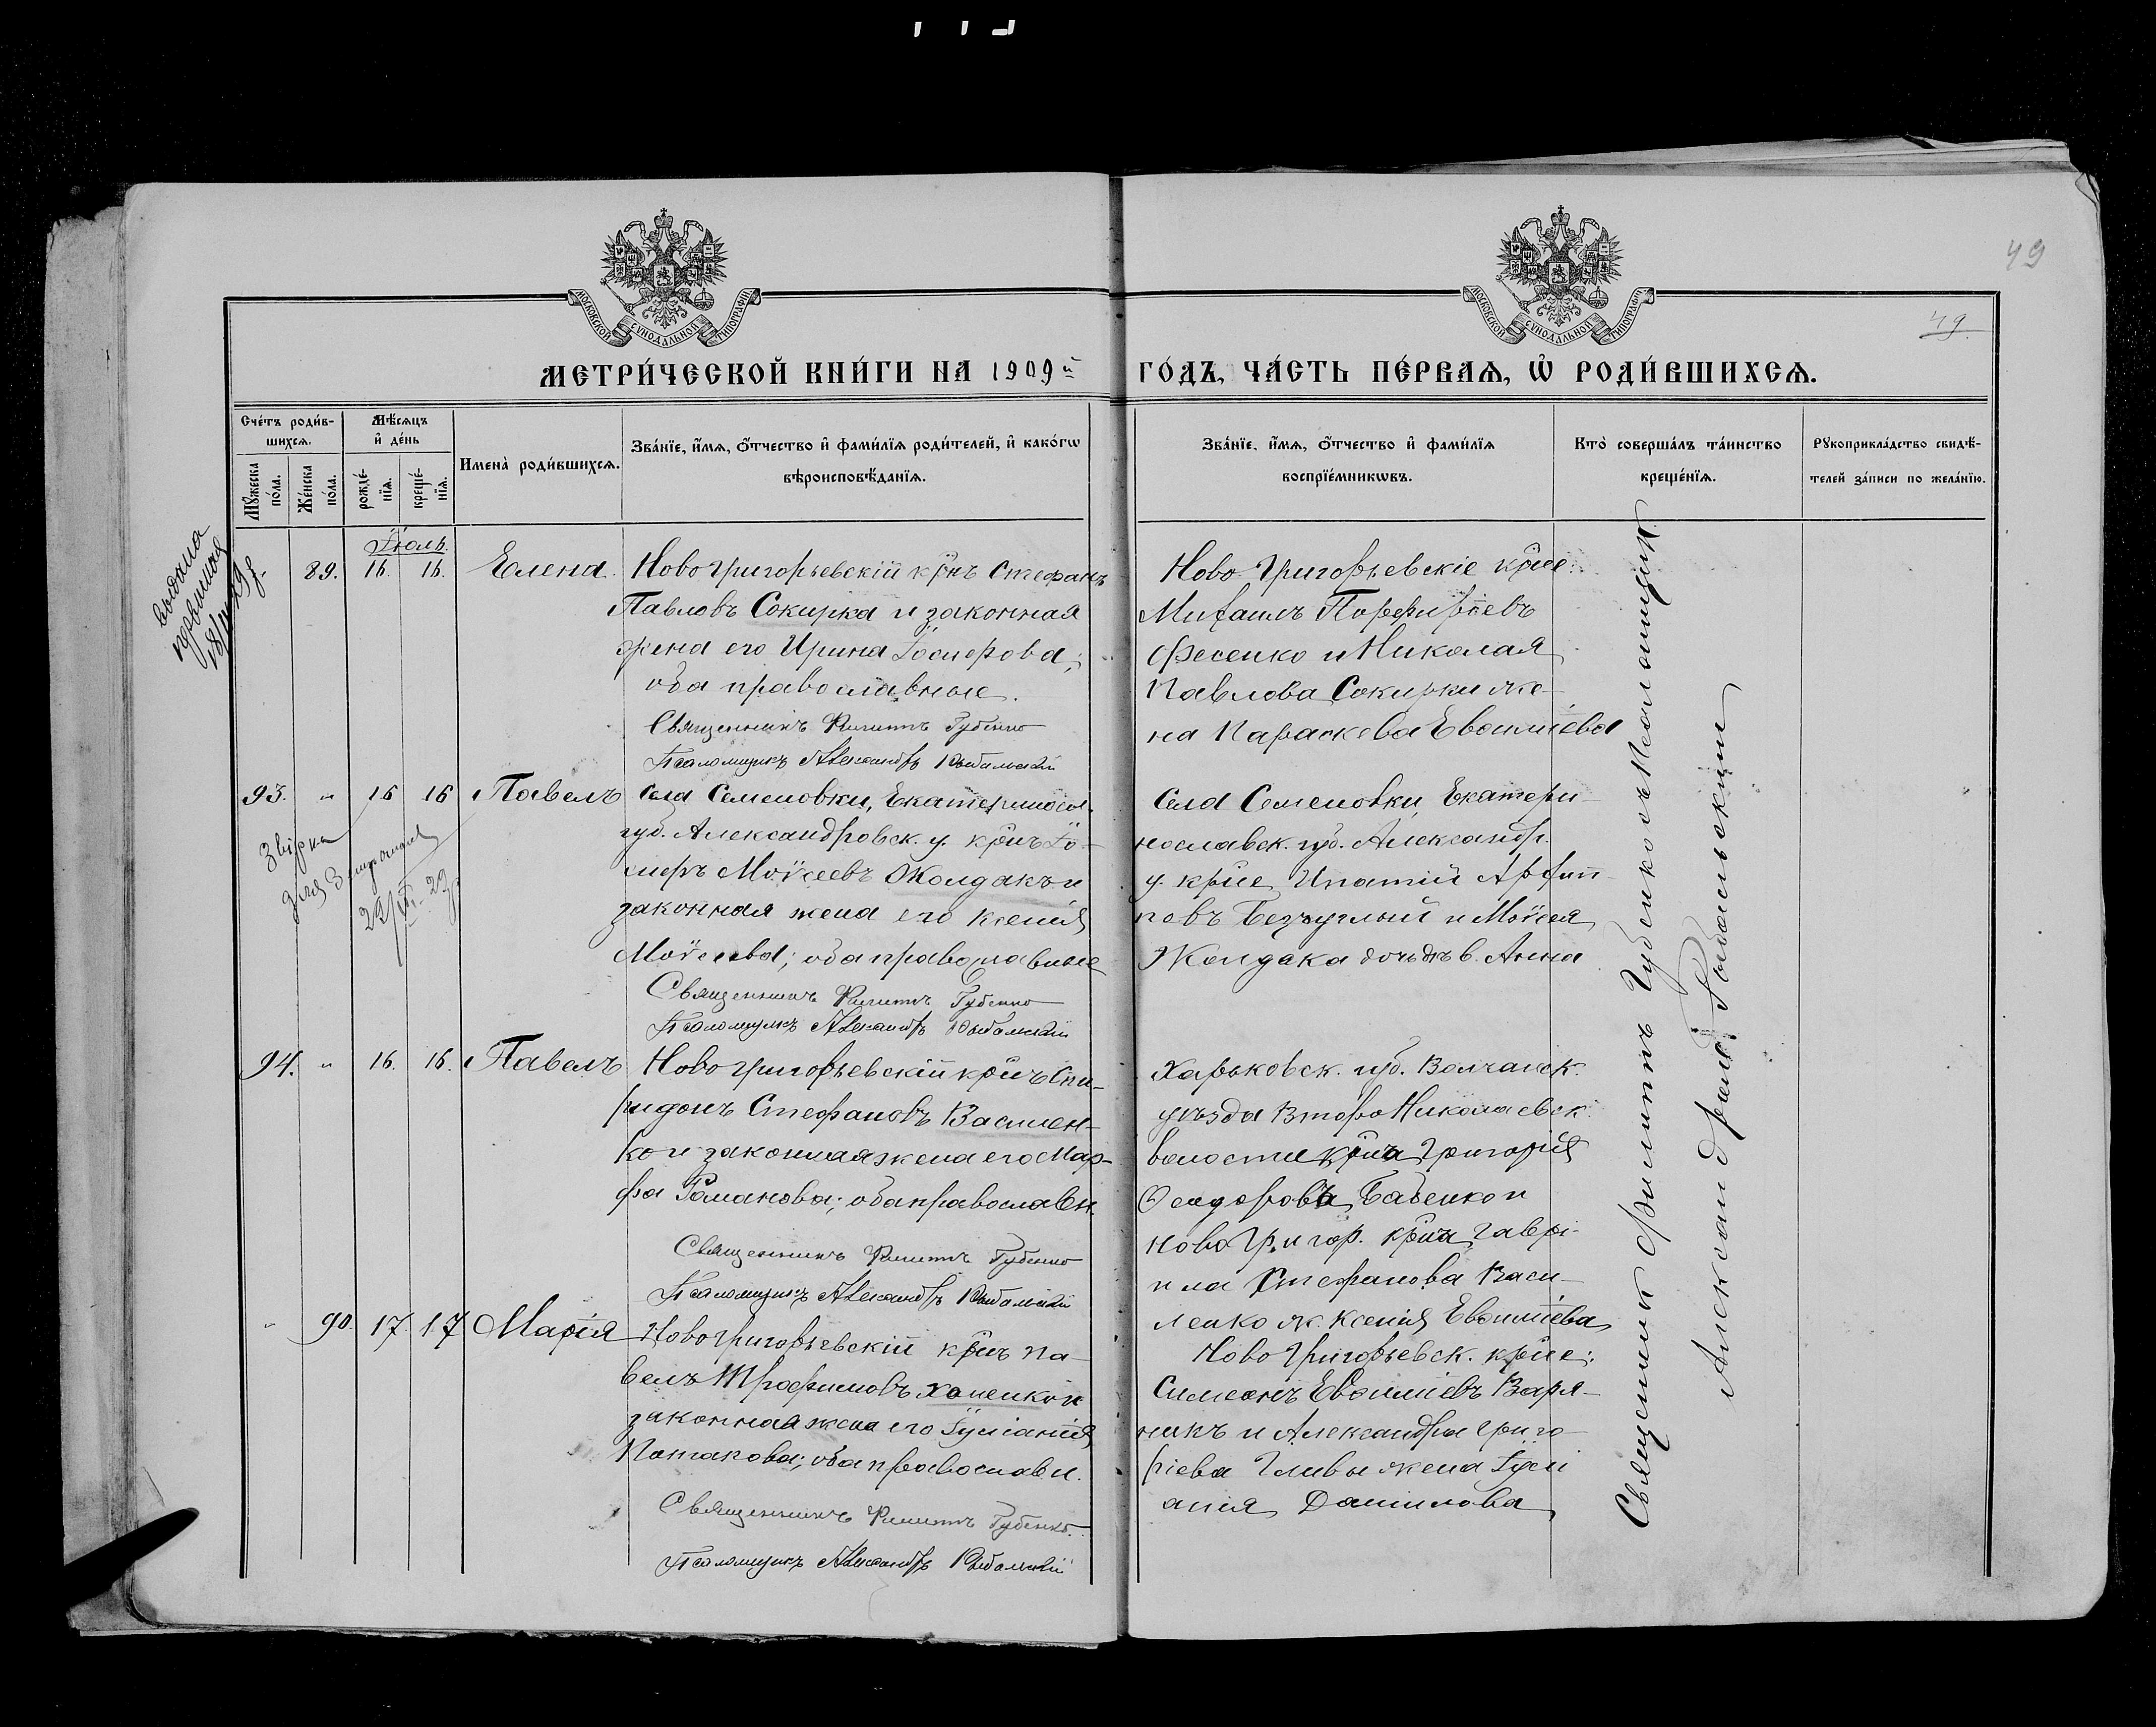 49
49.
МОСКОВСКОЙ СѴНОДАЛЬНОЙ ТИПОГРАФІИ
МОСКОВСКОЙ СѴНОДАЛЬНОЙ ТИПОГРАФІИ
МЕТРИ́ЧЕСКОЙ КНИ́ГИ НА 1909й ГО́ДЪ, ЧА́СТЬ ПЕ́РВАѦ, Ѡ҆ РОДИ́ВШИХСѦ.
Сче́тъ роди́в-
шихсѧ.
Мꙋ́жеска по́ла.
Же́нска по́ла.
Мѣ́сѧцъ
и҆ де́нь
рожде́-
нїѧ.
креще́-
нїѧ.
Имена̀ роди́вшихсѧ.
Зва́нїе, и҆́мѧ, ѻ҆́тчество и҆ фами́лїѧ роди́телей, и҆ како́гѡ
вѣроисповѣ́данїѧ.
Зва́нїе, и҆́мѧ, ѻ҆́тчество и҆ фами́лїѧ
воспрїе́мникѡвъ.
Кто̀ соверша́лъ та́инство
креще́нїѧ.
Рꙋкоприкла́дство свидѣ́-
телей за́писи по жела́нїю.
выдана
Іюль.
89. 16. 16. Елена. Новогригорьевскій крнъ Стефанъ
Павловъ Сокирка и законная
жена его Ирина Іосифова;
оба православные.
Священникъ Филиппъ Губенко
Псаломщикъ Александръ Рыбальскій
Ново-Григорьевскіе крне:
Михаилъ Порфиріевъ
Фесенко и Николая
Павлова Сокирки же-
на Параскева Евфиміева
93. " 16 16 Павелъ Села Семеновки, Екатериносл.
губ. Александровск. у. крнъ Іо-
сифъ Мойсеевъ Жолдакъ и
законная жена его Ксенія
Мойсеева; оба православные
Священникъ Филиппъ Губенко
Псаломщикъ Александръ Рыбальскій
Звірка
для
Села Семеновки, Екатери-
нославск. губ. Александр.
у. крне Ипатій
Безуглый и Мойсея
Жолдака дочь Анна
94. " 16. 16. Павелъ Новогригорьевскій крнъ Спи-
ридонъ Стефановъ Василен-
ко и законная жена его Мар-
фа Романова; оба православн.
Священникъ Филиппъ Губенко
Псаломщикъ Александръ Рыбальскій
Харьковск. губ. Волчанск.
уѣзда Второ Николаевск.
волости крна Григорія
Ѳеодорова Бабенко и
Новогригор. крна Гаврі-
ила Стефанова Васи-
ленко ж. Ксенія Евфиміева
" 90. 17. 17 Марія Новогригорьевскій крнъ Па-
велъ Трофимовъ Хоменко и
законная жена его Іуліанія
Потапова; оба православн.
Священникъ Филиппъ Губенко.
Псаломщикъ Александръ Рыбальскій
Новогригорьевск. крне:
Симеонъ Евфиміевъ Варя-
никъ и Александра Григо-
ріева жена Іулі
анія Данилова
Священник Филиппъ Губенко Псаломщик
Александръ Рыбальскій